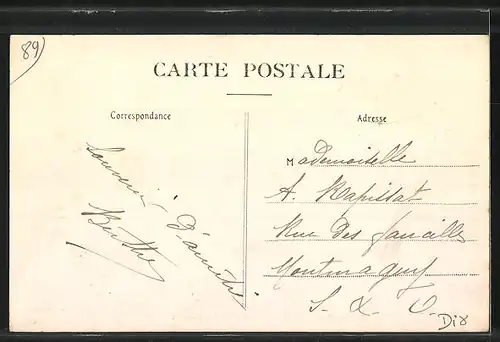 89
CARTE POSTALE
Correspondance
Adresse
Souvenir
D'amitié
Berthe
Mademoiselle
A. Rapillat
Rue des
Montmagny
S. & O.